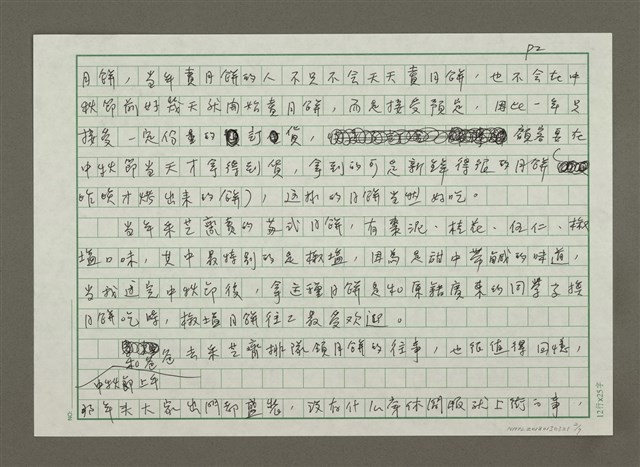 P2
月餅，當年賣月餅的人不只不会天天賣月餅，也不会在中
秋節前好幾天就開始賣月餅，而是接受預定，因此一年只
接受一定份量的封貨，顧客要在
中秋節當天才拿得到貨，拿到的可是新鮮得很的月餅（
昨晚才烤出來的餅），這樣的月餅当然好吃。
當年采芝齋賣的蘇式月餅，有棗泥、桂花、伍仁、椒
塩口味，其中最特別的是椒塩，因為是甜中帶鹹的味道，
當我过完中秋節後，拿这種月餅是和原籍廣東的同學子換
月餅吃時，椒塩月餅往之最受欢迎。
和爸爸去采芝齋排隊領月餅的往事，也很值得回憶，
中秋節上午
那年未大家出門都盛裝，沒有什么穿休閒服就上街之事，
12行×25字